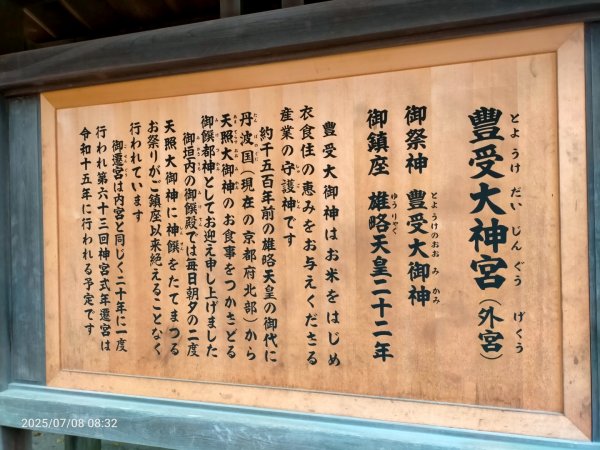 豊受大神宮(外宮)
とようけだいじんぐう げくう
御祭神 豊受大御神
とようけのおおみかみ
御鎮座 雄略天皇二十二年
ゆうりゃく
豊受大御神はお米をはじめ
衣食住の恵みをお与えくださる
産業の守護神です
約千五百年前の雄略天皇の御代に
丹波国(現在の京都府北部)から
天照大御神のお食事をつかさどる
御饌都神としてお迎え申し上げました
御垣内の御饌殿では毎日朝夕の二度
天照大御神に神饌をたてまつる
お祭りがご鎮座以来絶えることなく
行われています
御遷宮は内宮と同じく二十年に一度
行われ第六十三回神宮式年遷宮は
令和十五年に行われる予定です
2025/07/08 08:32